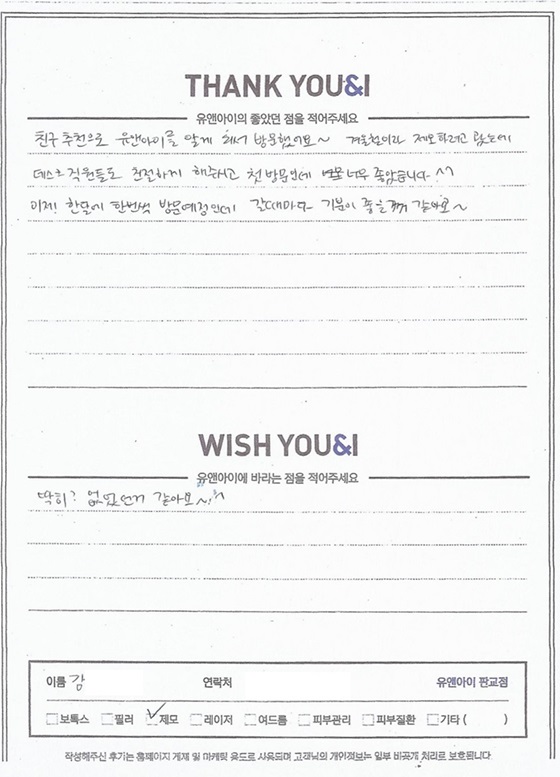 THANK YOU&I
유앤아이의 좋았던 점을 적어주세요
친구 추천으로 유앤아이를 알게 되서 방문했어요~ 겨울철이라 제모하려고 왔는데
데스크 직원들도 친절하게 해주시고 첫방문인데 너무 좋았습니다 ^^
이제 한달에 한번씩 방문예정인데 갈때마다 기분이 좋을꺼 같아요~
WISH YOU&I
유앤아이에 바라는 점을 적어주세요
딱히? 없었던거 같아요~!^^
이름 강 연락처 유앤아이 판교점
보톡스 필러 제모 레이저 여드름 피부관리 피부질환 기타 ( )
작성해주신 후기는 홈페이지 게제 및 마케팅 용도로 사용되며 고객님의 개인정보는 일부 비공개 처리로 보호됩니다.